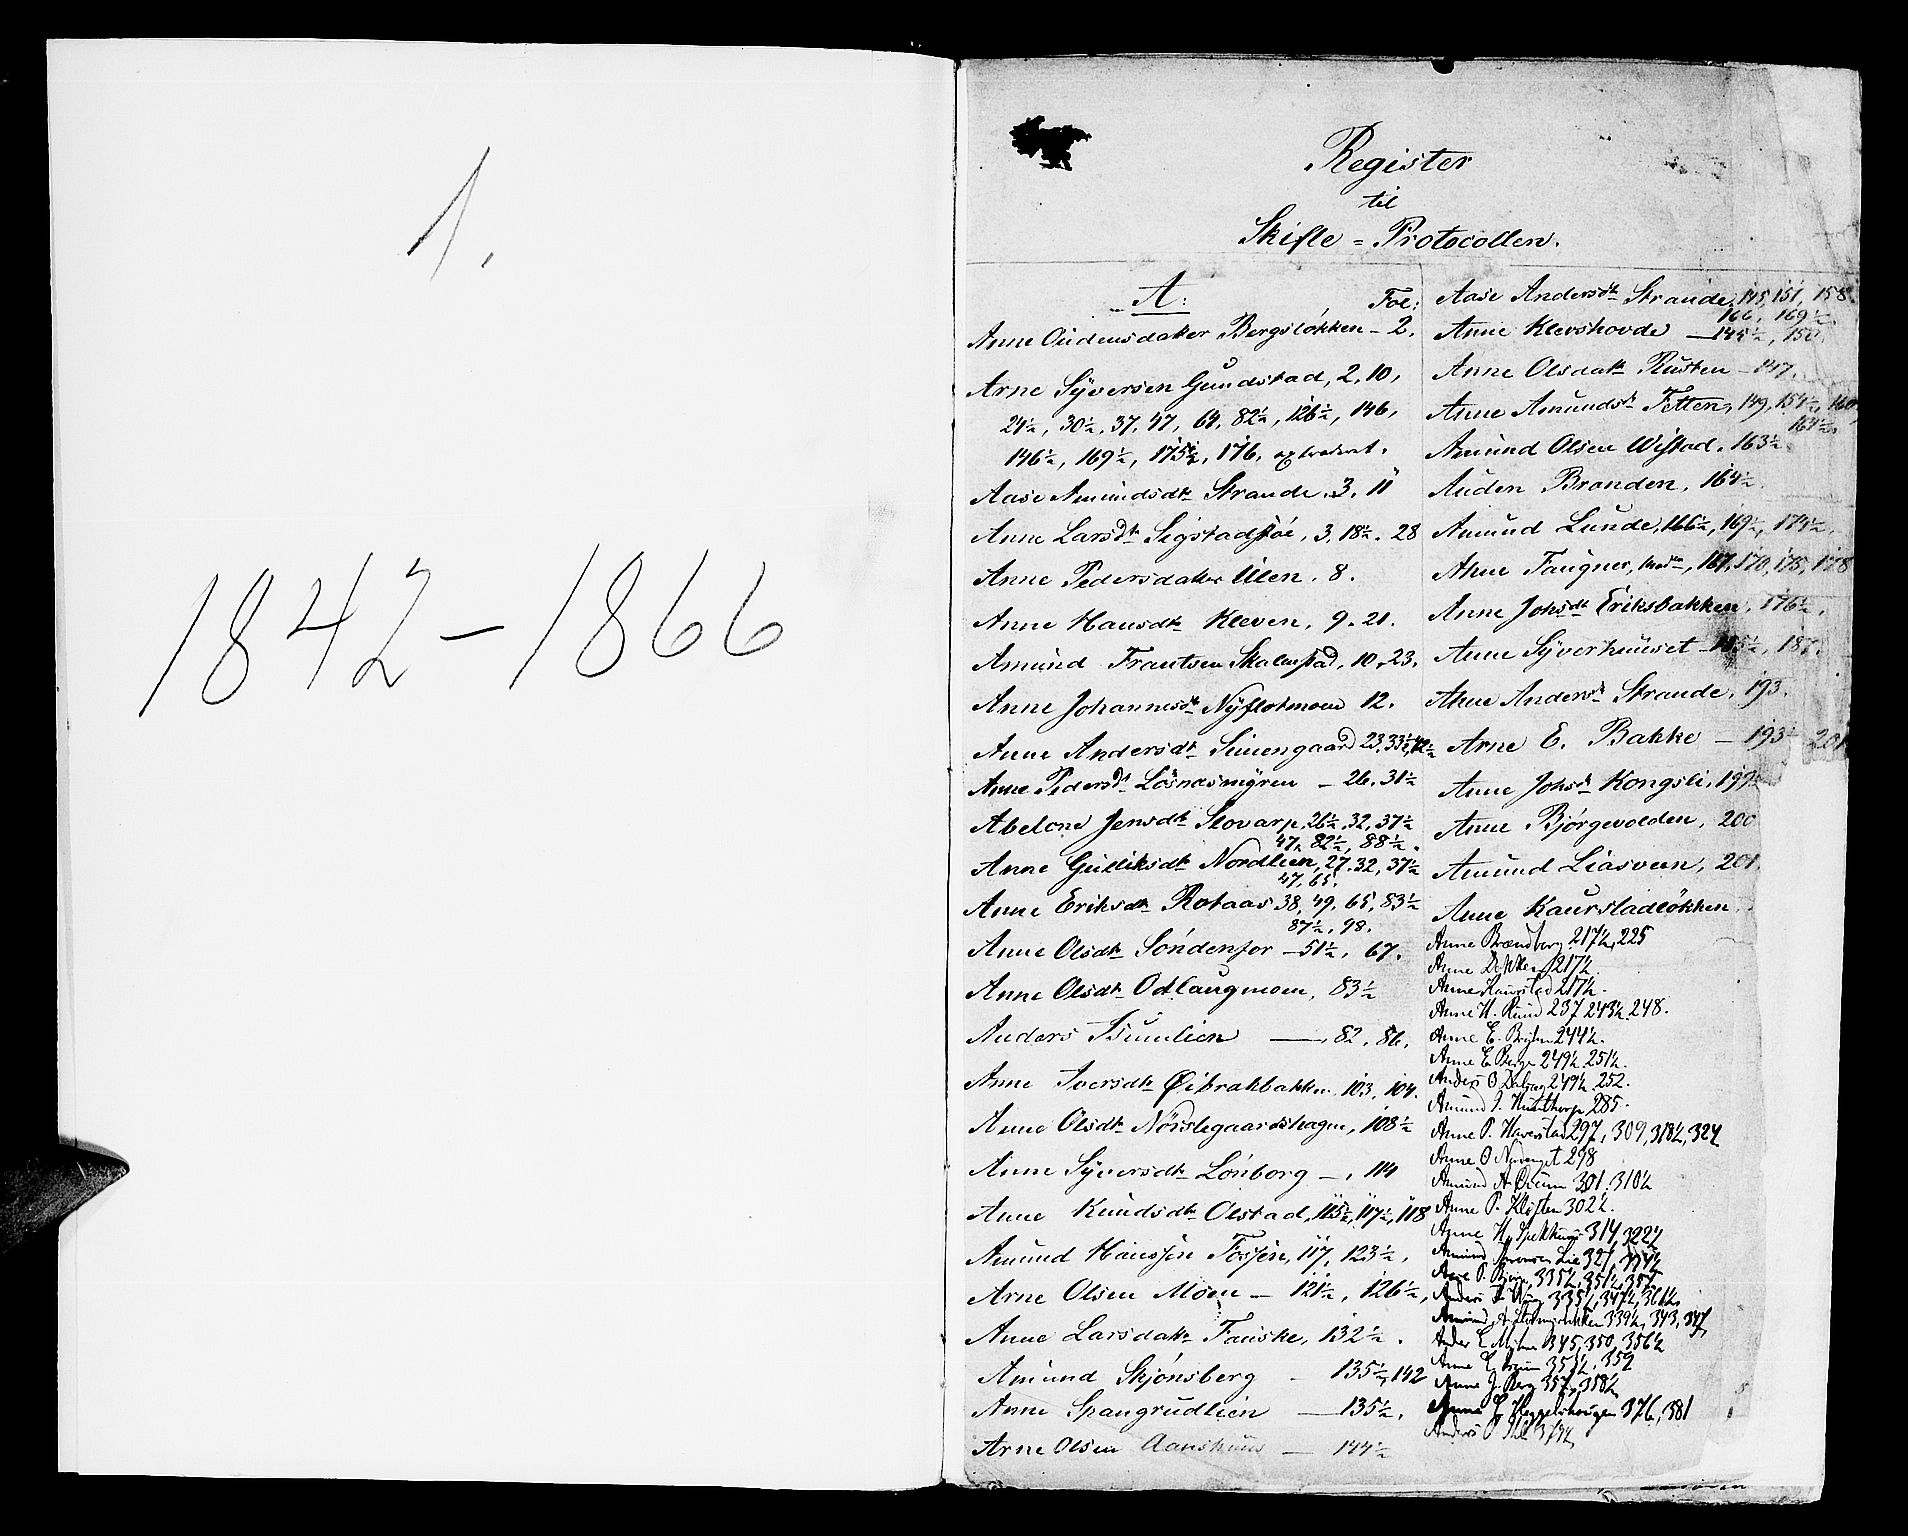 1.
1842-1866
Register
til
Skifte-Protocollen.
A:
Fol:
Anne Oudensdatter Bergsløkken - 2.
Arne Syversen Gundstad, 2, 10,
24½, 30½, 37, 47, 64, 82½, 126½, 146,
146½, 169½, 175½, 176, extraderet.
Aase Amundsdtr Strande, 3, 11
Anne Larsdtr Sigstadsøe, 3, 18½, 28
Anne Pedersdatter Ulen, 8.
Anne Hansdtr Kleven, 9, 21.
Amund Frantsen Skalmstad, 10, 23.
Anne Johannesdtr Nyflotmoen 12.
Anne Andersdtr Simengaard 23, 33½, 42½
Anne Pedersdtr Losnasmyren - 26, 31½
Abelone Jensdtr Slovarp, 26½, 32, 37½
47, 82½, 88½.
Anne Guliksdtr Nordlien, 27, 32, 37½
47, 65.
Anne Eriksdtr Rotaas 38, 49, 65, 83½
87½, 98.
Anne Olsdtr Søndenfor - 51½, 67.
Anne Olsdtr Odlaugmoen, 83½
Anders Isumlien - 82, 86.
Anne Iversdtr Øibrakbakken, 103, 104.
Anne Olsdtr Nørstegaardshagen, 108½
Anne Syversdtr Lønborg -, 114
Anne Knudsdtr Olstad, 115½, 117½, 118
Amund Hanssen Fossen, 117, 123½,
Arne Olsen Moen - 121½, 126½,
Anne Larsdatr Fauske, 132½.
Amund Skjønsberg - 135½, 142
Anne Spangrudlien - 135½,
Arne Olsen Aanshuus - 144½
Aase Andersdtr Strande, 145, 151, 158
166, 169½,
Anne Klevshovde - 145½, 150.
Anne Olsdatr Rusten - 147.
Anne Amundsdtr Tetten, 149, 154½, 160,
164½,
Amund Olsen Wistad, 163½
Auden Branden, 164½.
Amund Lunde, 166½, 169½, 174½,
Ahne Faugner, 167, 170, 175, 178
Anne Johsdtr Eriksbakken, 176½,
Anne Syverhuuset - 185½, 187.
Ahne Andersdtr Strande, 193.
Arne E. Bakke - 193½ 201
Anne Johsdtr Kongsli, 199½
Anne Bjørgevolden, 200
Amund Liasveen, 201.
Anne Kaurstadløkken
Anne Brændborg 217½, 225
Anne 217½.
Anne Kaurstad 217½.
Anne H. Ruud 237 243½ 248.
Anne E. 244½.
Anne E Berge 249½ 251½.
Anders O 249½ 252.
Amund J. Hustthorp 285.
Anne P. Haverstad 297, 309, 318½, 324
Anne O 298
Amund A. 301. 310½
Anne P. Kliften 302½.
Anne H. 314, 322½
Amund Lie 327, 334½
Anne P. 335½, 351½, 357
Anders 335½, 347½, 361½
Amund 339½, 343, 347
Anders E. 345, 350, 356½
Anne E. 355½, 359
Anne J. Berg 357, 358½
Anne E. Keggelshaugen 376, 381
Anders P. 379½